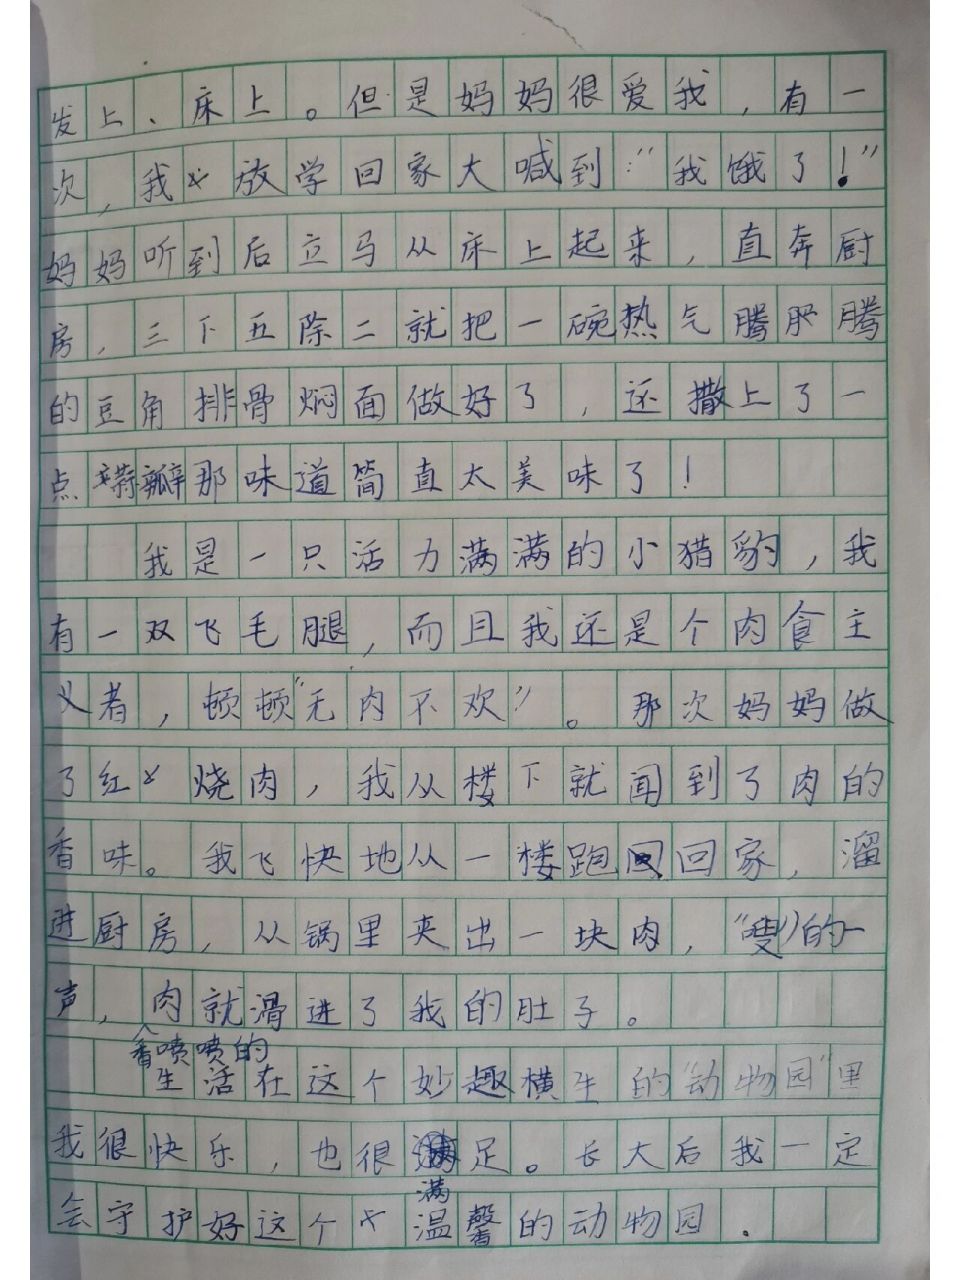 发上、床上。但是妈妈很爱我，有一
次，我放学回家大喊到：“我饿了！”
妈妈听到后立马从床上起来，直奔厨
房，三下五除二就把一碗热气腾腾
的豆角排骨焖面做好了，还撒上了一
点瓣那味道简直太美味了！
我是一只活力满满的小猎豹，我
有一双飞毛腿，而且我还是个肉食主
义者，顿顿“无肉不欢”。那次妈妈做
了红烧肉，我从楼下就闻到了肉的
香味。我飞快地从一楼跑回家，溜
进厨房，从锅里夹出一块肉，“嗖”的一
声，香喷喷的肉就滑进了我的肚子。
生活在这个妙趣横生的“动物园”里
我很快乐，也很满足。长大后我一定
会守护好这个温馨的动物园.